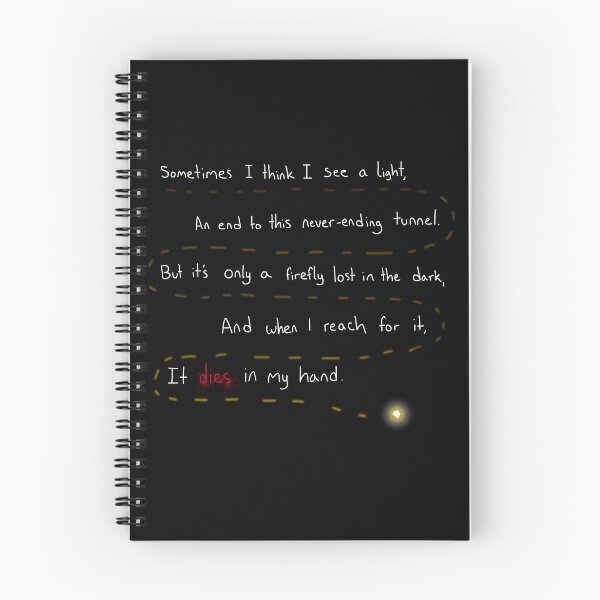 Sometimes I think I see a light,
An end to this never-ending tunnel.
But it's only a firefly lost in the dark,
And when I reach for it,
It dies in my hand.